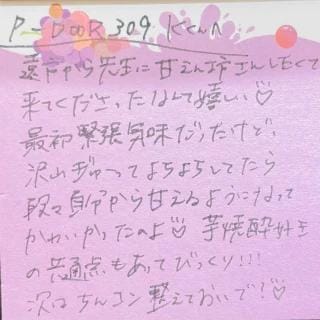 P-DOOR 309 Kさん
遠方から先生に甘えん坊さんしたくて
来てくださったなんて嬉しい♡
最初緊張気味だったけど、
沢山ぎゅーってよちよちしてたら
段々自分から甘えるようになって
かわいかったのよ♡ 芋焼酎好き
の共通点もあってびっくり!!!
次はちんコン整えておいで?♡